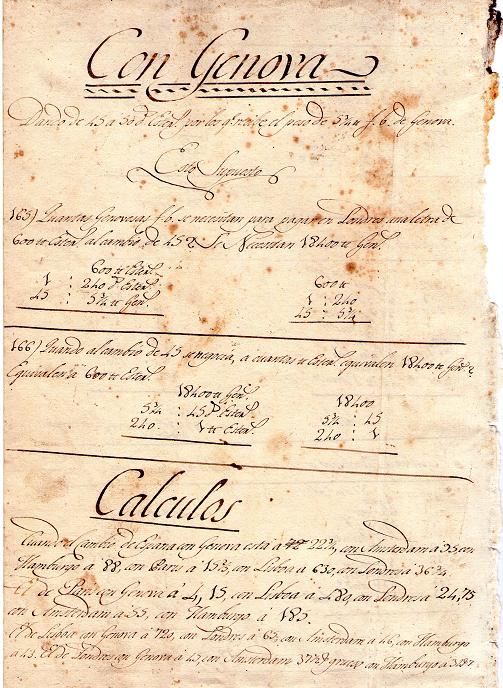 Con Genova
Dando de 45 a 50 d. Esterl. por los q. recibe el peso de 5¾ # f. b. de Genova.
Esto Supuesto
165) Quantas Genovesas f. b. se necesitan para pagar en Londres una letra de
600 # Esterl. al cambio de 45? Se Necesitan 18400 # Gen.
600 # Esterl. 600 #
1 : 240 d. Esterl. 1 : 240
45 : 5¾ # Gen. 45 : 5¾
166) Quando al cambio de 45 se negocia, a cuantas # Esterl. equivalen 18400 # Gen.?
Equivalen à 600 # Esterl.
18400 # Gen. 18400
5¾ : 45 d. Esterl. 5¾ : 45
240 : 1 # Esterl. 240 : 1
Calculos
Cuando el cambio de Espana con Genova está à 22¾, con Amsterdam à 95 con
Hamburgo à 88, con Paris à 15¾, con Lisboa à 630, con Londres à 36¾.
El de Paris con Genova à 4,15, con Lisboa à 480, con Londres à 24,75
con Amsterdam à 55, con Hamburgo à 185.
El de Lisboa con Genova à 720, con Londres à 65, con Amsterdam à 46, con Hamburgo
à 43. El de Londres con Genova à 45, con Amsterdam con Hamburgo à